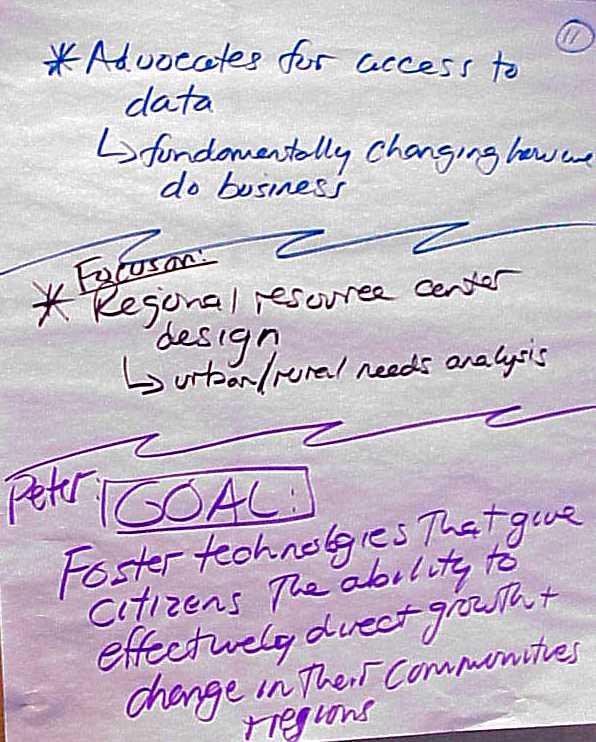 11
* Advocates for access to
data
↳ fundamentally changing how we
do business
Focus on:
* Regional resource center
design
↳ urban/rural needs analysis
Peter: GOAL:
Foster technologies That give
citizens The ability to
effectively direct growth +
change in Their communities
+ regions